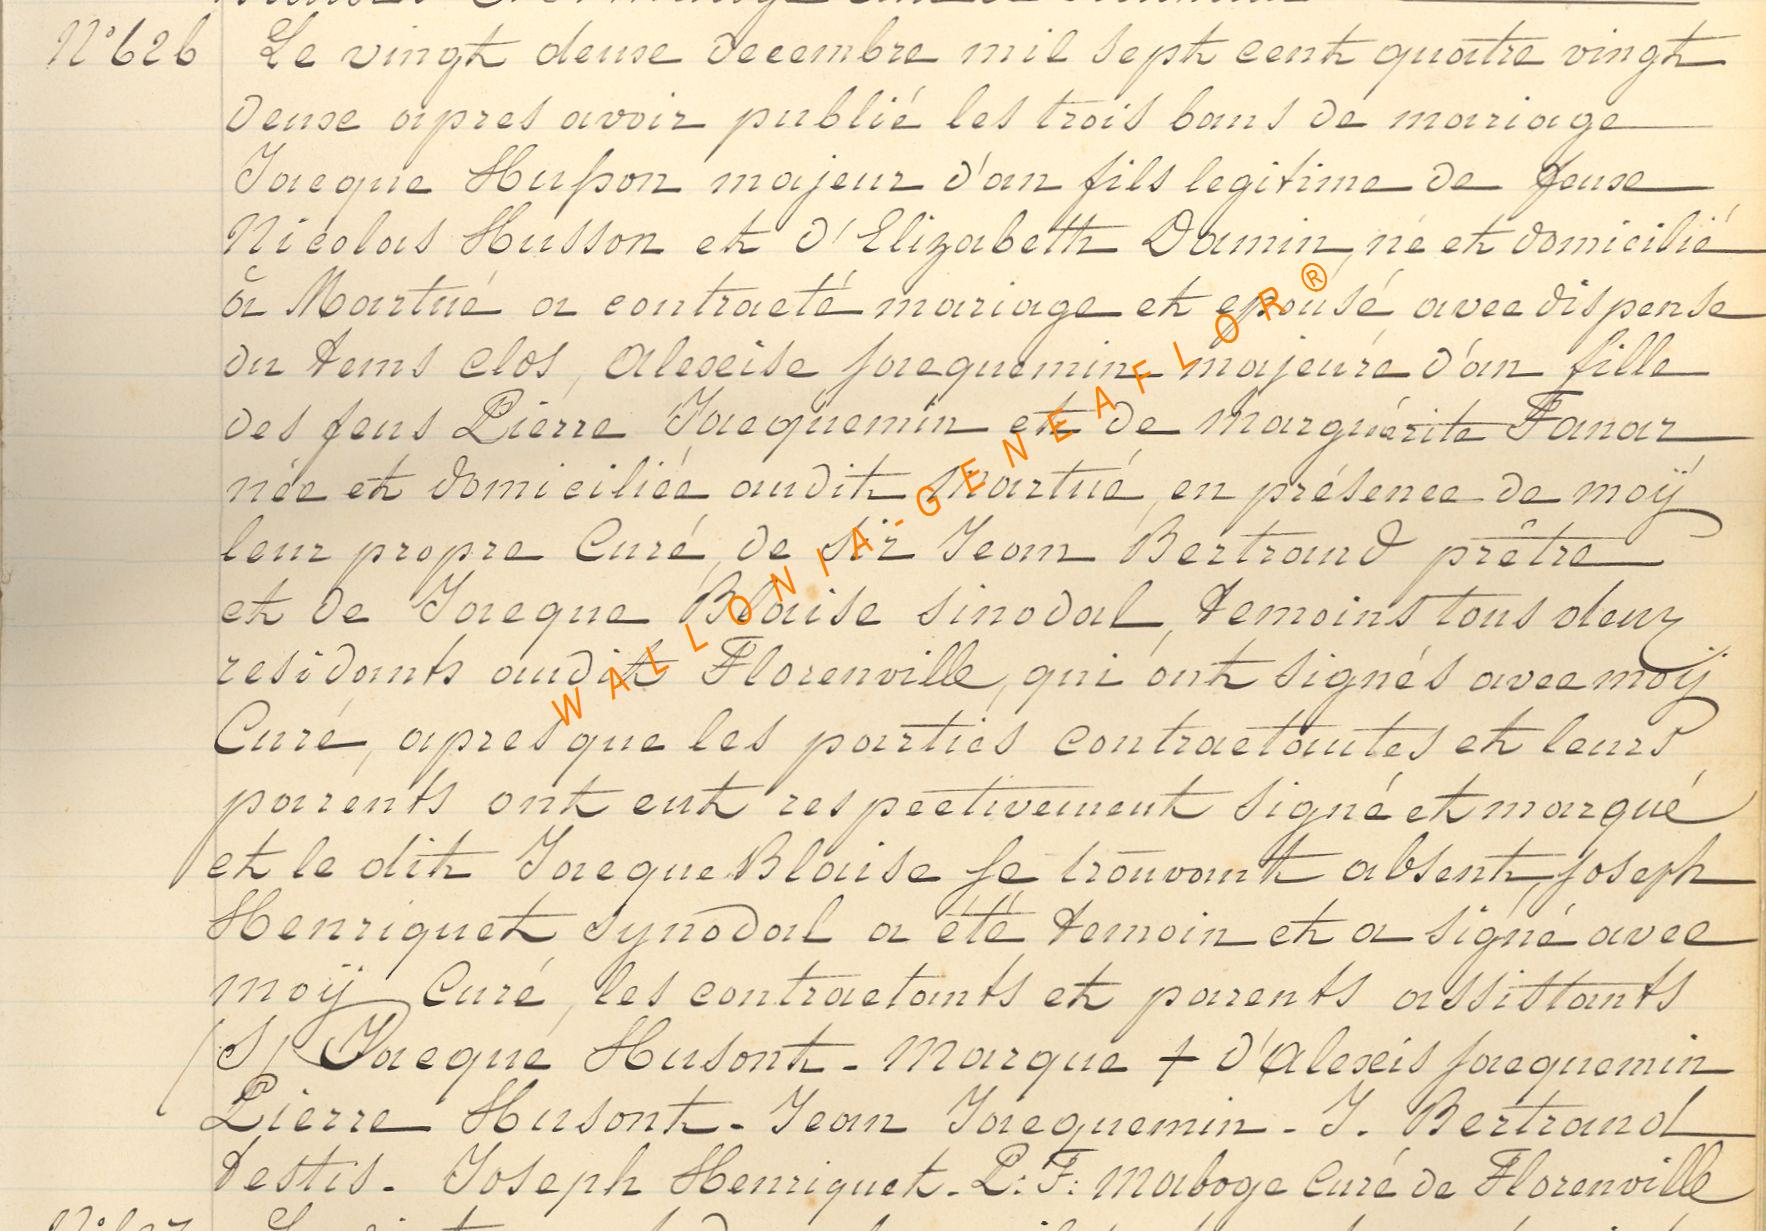 N° 626 Le vingt deuxe decembre mil sept cent quatre vingt
deuxe apres avoir publié les trois bans de mariage
Jacque Husson majeur d'an fils legitime de feuxe
Nicolas Husson et d'Elizabeth Damin, né et domicilié
à Martué a contracté mariage et epousé avec dispense
du tems clos, Alexise Jacquemin majeure d'an fille
des feus Pierre Jacquemin et de Marguérite Fanar
née et domiciliée audit Martué, en présence de moÿ
leur propre Curé, de Sïr Jean Bertrand prêtre
et de Jacque Blaise sinodal, temoins tous deux
residants audit Florenville, qui ont signés avec moÿ
Curé, apres que les parties contractantes et leurs
parents ont eut respectivement signé et marqué
et le dit Jacque Blaise se trouvant absent, Joseph
Henriquet synodal a été temoin et a signé avec
moÿ Curé, les contractants et parents assistants
(S) Jacque Husont - Marque + d'Alexis Jacquemin
Pierre Husont - Jean Jacquemin - J. Bertrand
testis - Joseph Henriquet - P: F: Maboge Curé de Florenville
WALLONIA-GENEAFLOR®